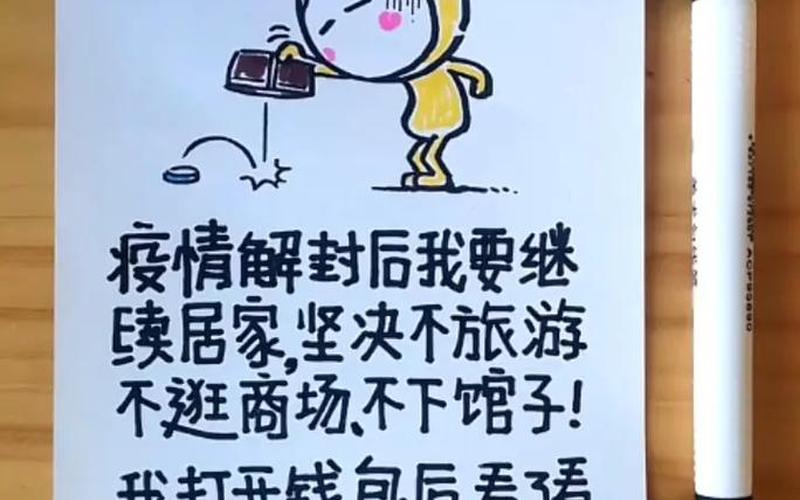 疫情解封后我要继
续居家,坚决不旅游
不逛商场、不下馆子!
我打开钱包后看了看